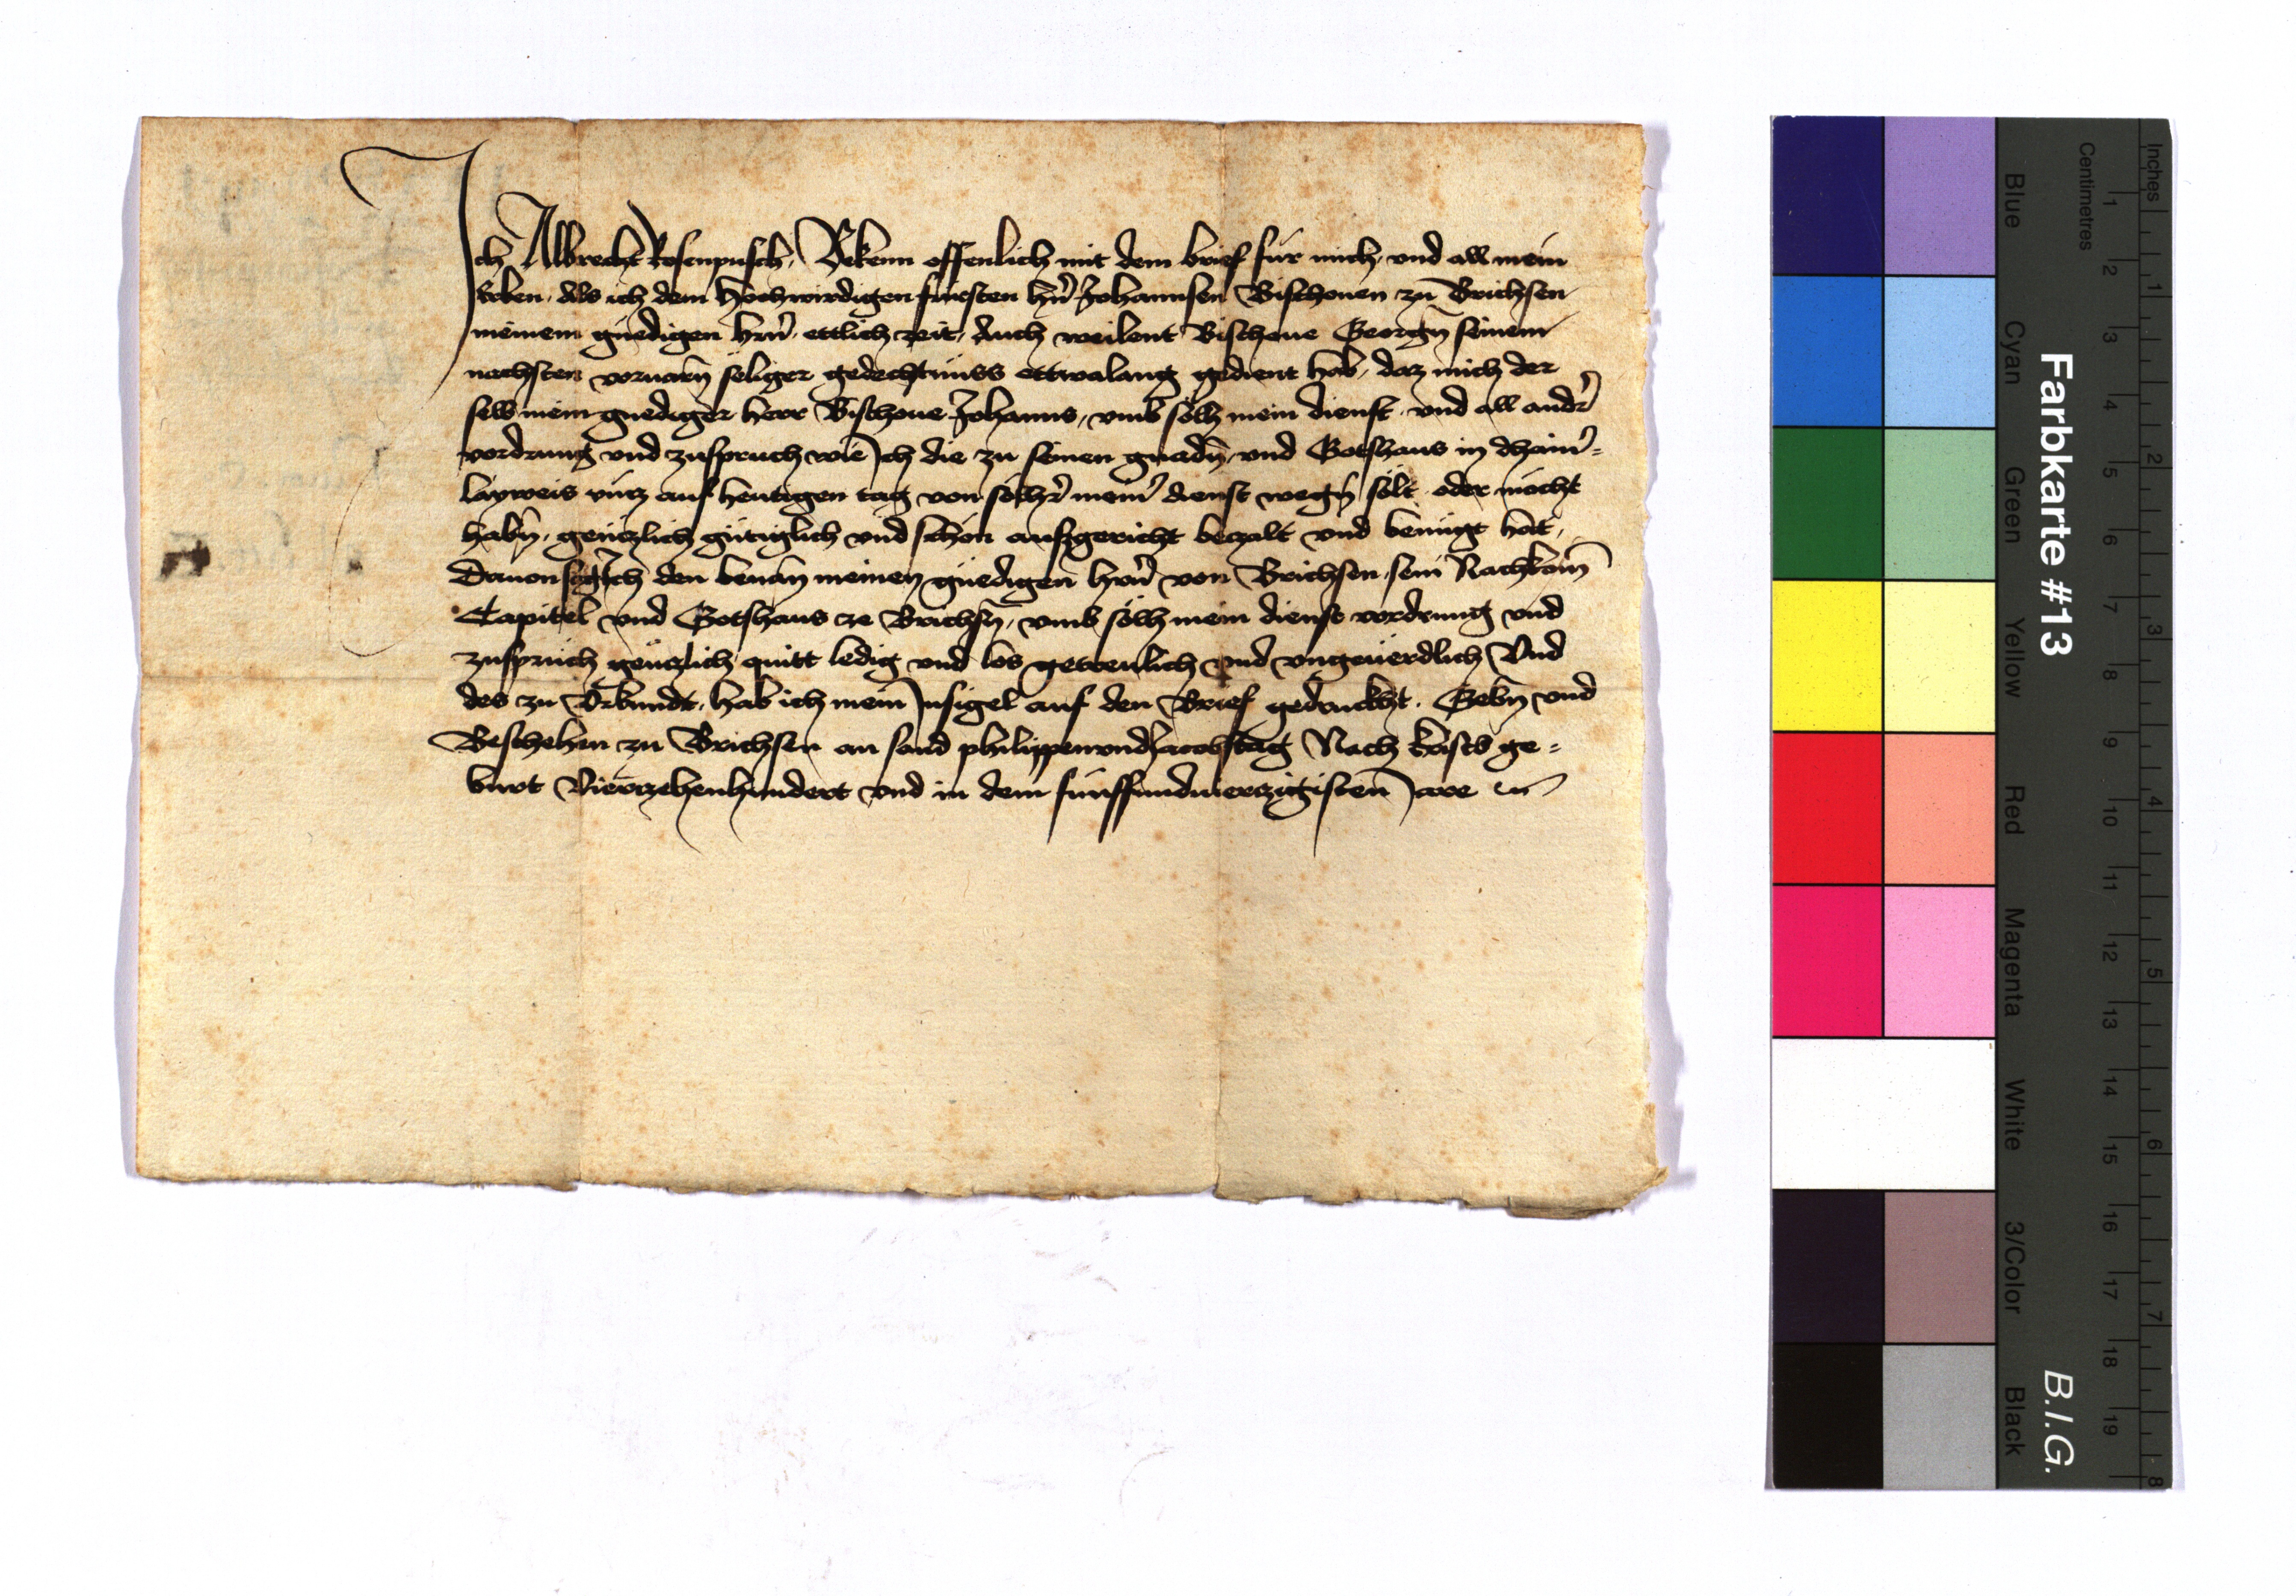 Ich Albrecht Rosenpusch, Bekenn offenlich mit dem brief für mich, und all mein
Erben, Als ich dem Hochwirdigen fürsten hrn Johannsen Bischouen zu Brichsen
meinem gnedigen hrn, ettlich zeit, Auch weilent Bischoue Georgn seinem
nachsten voruarn seliger gedechtnüss ettwalang gedient hab, daz mich der
selb mein gnediger herr Bischoue Johanns, vmb sölh mein dienst, vnd all andr
vordrung vnd zuspruch wie Ich die zu seinen gnadn, vnd Gotshaus in dhain-
layweis vntz auf heutigen tag von solhr meinr dienst wegn solt oder mocht
habn, gentzlich gütiglich vnd schon aussgericht betzalt vnd benügt hat,
Dauon sag Ich den benan meinen gnedigen hrn von Brichsen, sein Nachkom
Capitel vnd Gotshaus ze Brichsn, vmb sölh mein dienst vordrung vnd
zuspruch gentzlich quitt ledig vnd los getrewlich vnd vngeuerdlich Vnd
des zu Vrkundt, hab ich mein Insigel auf den Brief gedruckht. Gebn vnd
Beschehen zu Brichsen an sand philippen vnd Jacobstag Nach krists ge-
burt Vierzehenhundert vnd in dem fünffundvierzigisten Jare
Farbkarte #13
B.I.G.
Centimetres
Inches
Blue
Cyan
Green
Yellow
Red
Magenta
White
3/Color
Black
1 2 3 4 5 6 7 8 9 10 11 12 13 14 15 16 17 18 19
1 2 3 4 5 6 7 8